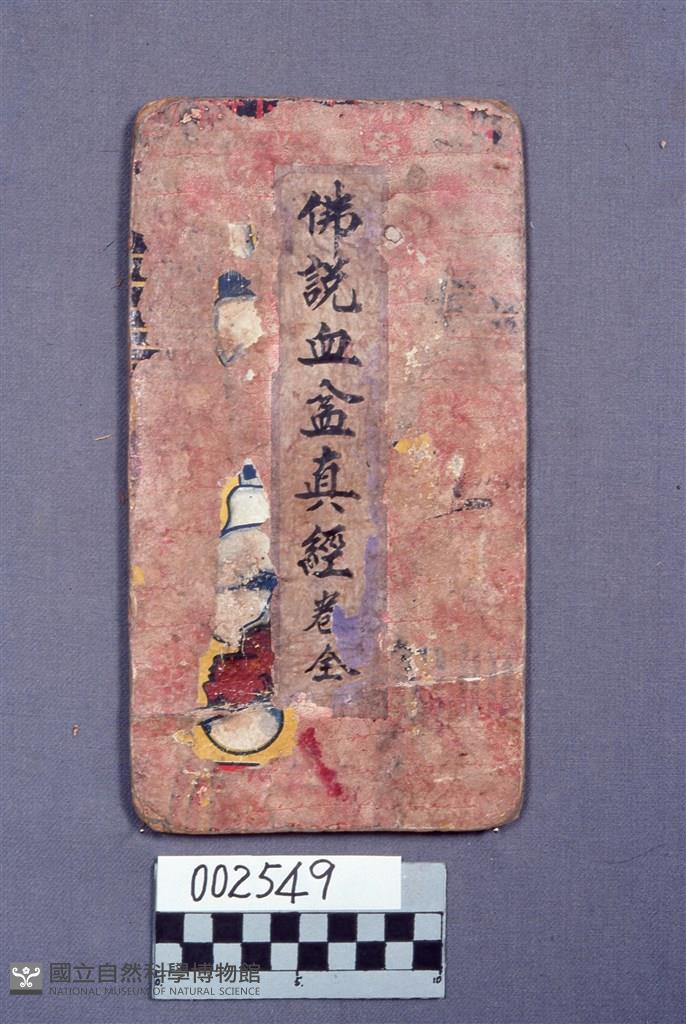 佛說血盆真經卷全
002549
0. 5. 10
國立自然科學博物館
NATIONAL MUSEUM OF NATURAL SCIENCE